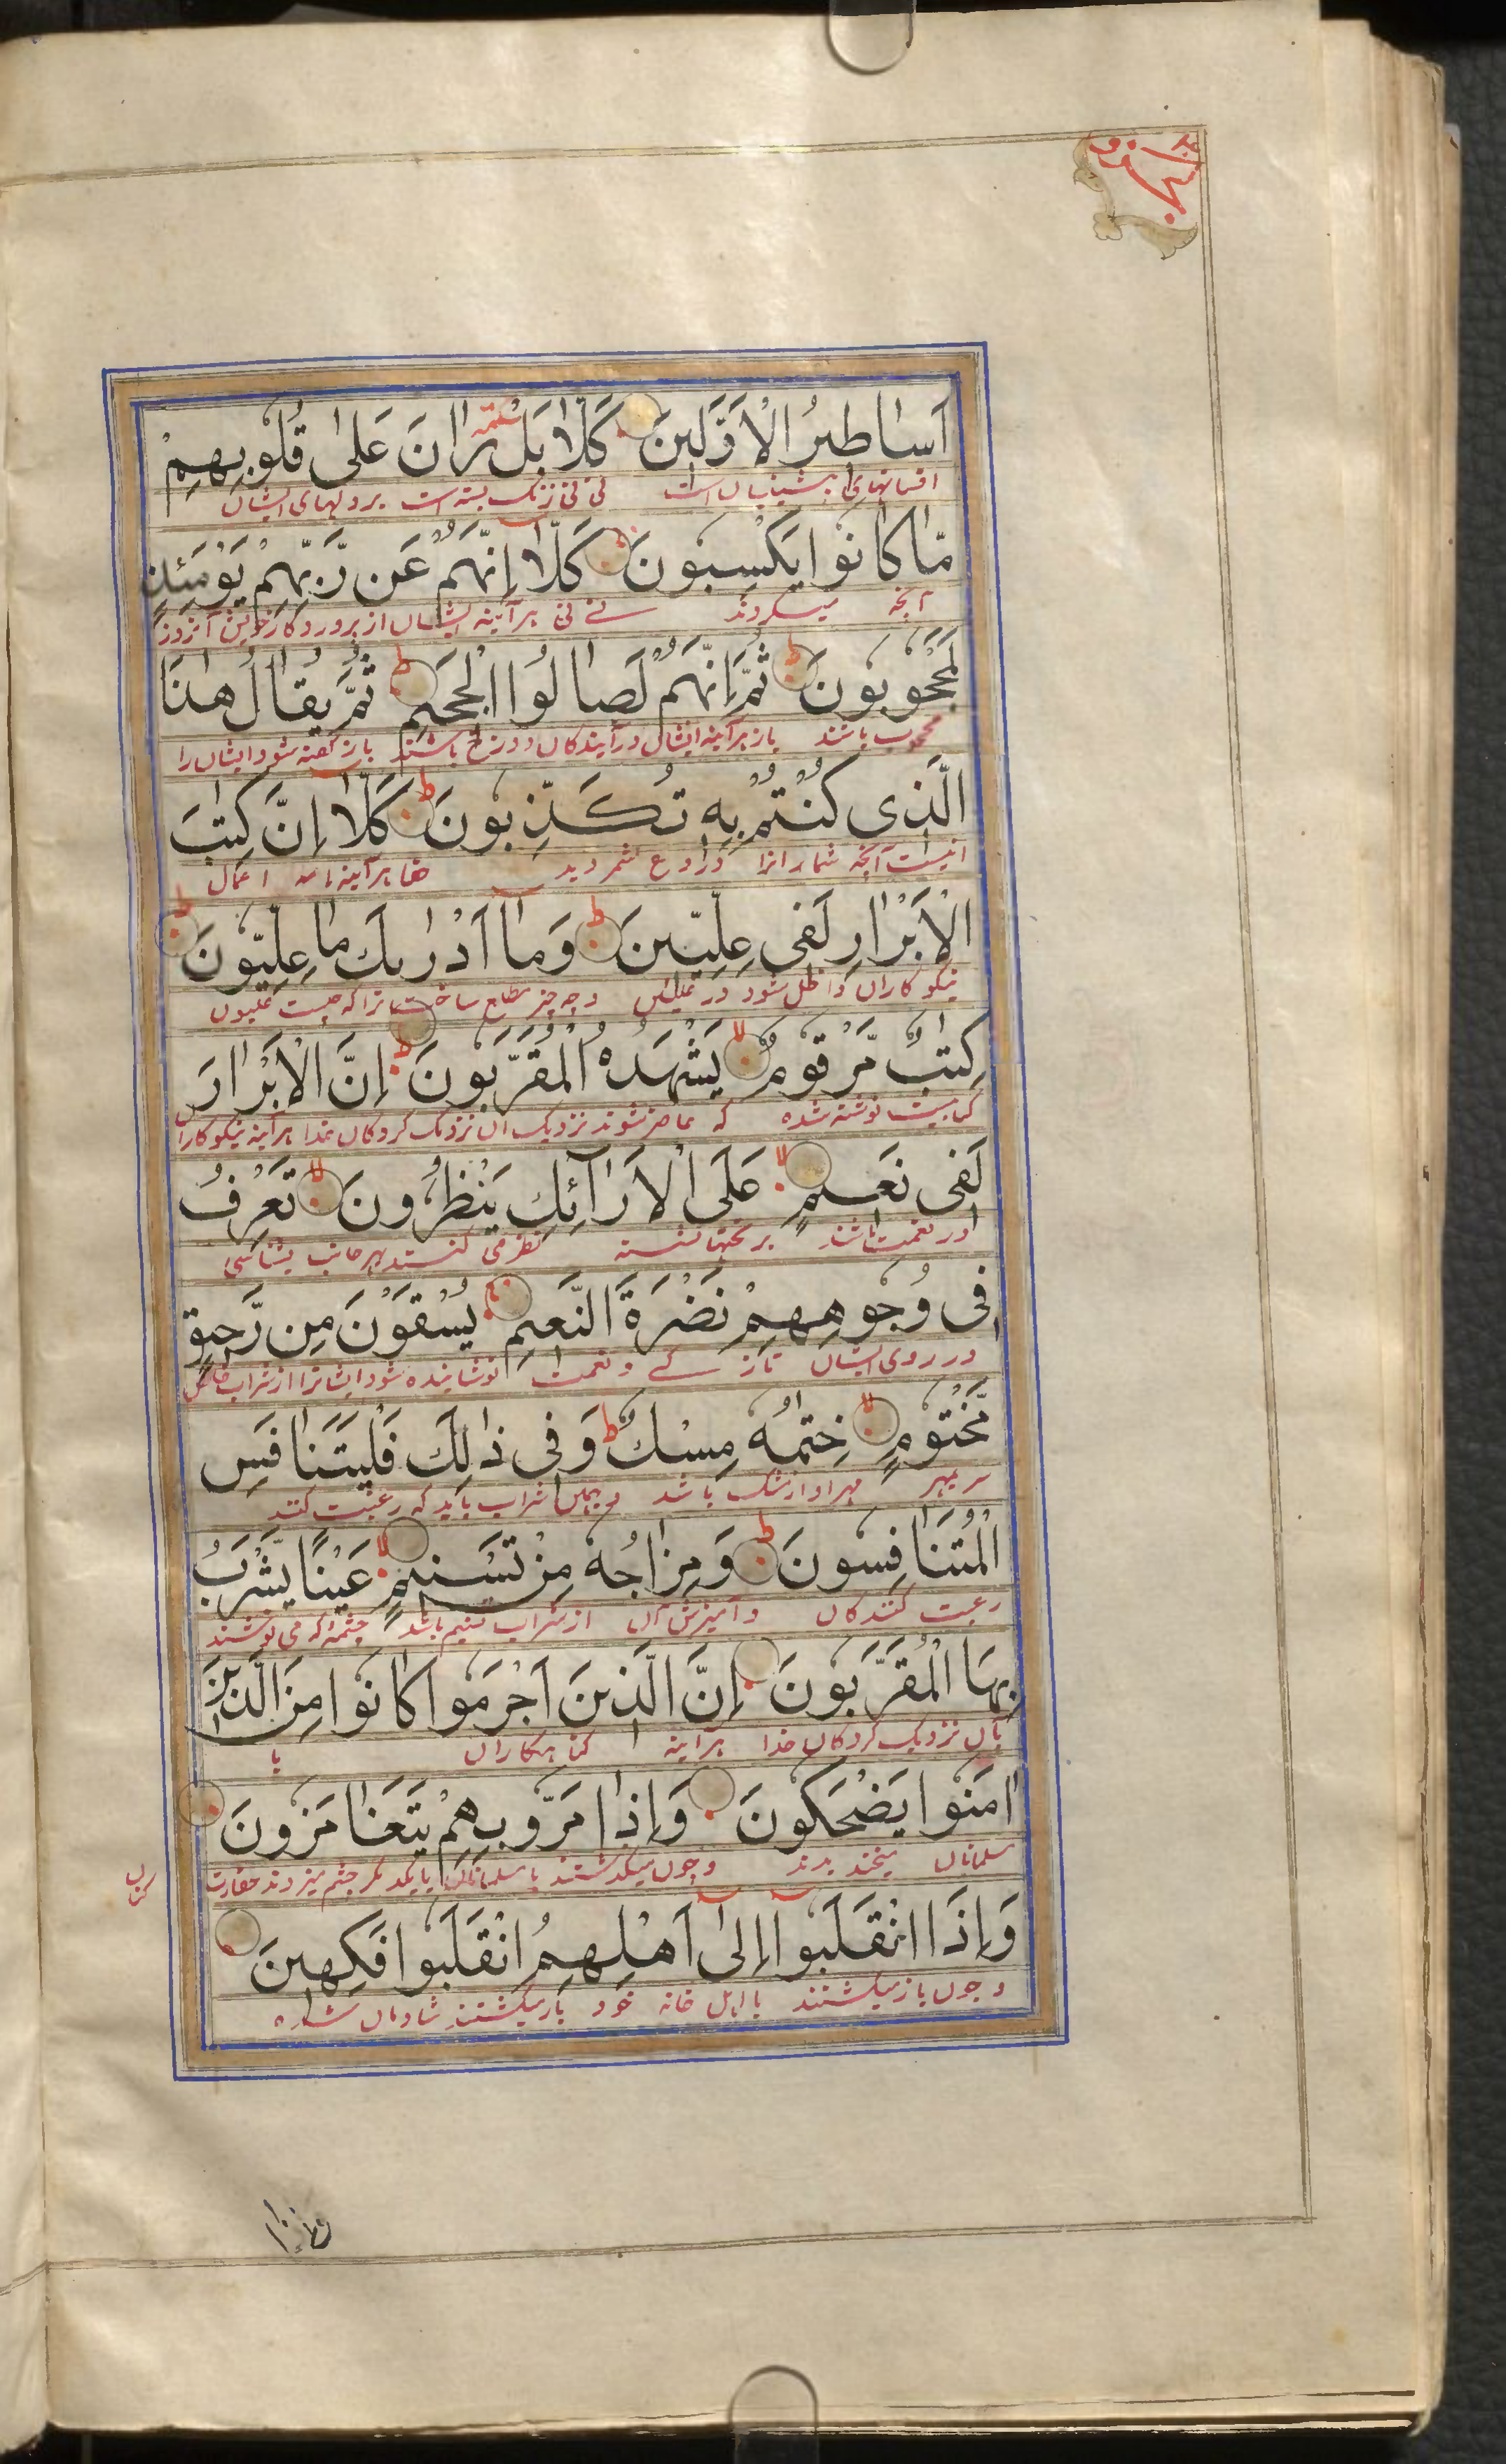 الجزو ٣٠
اَسَاطِيْرُ الْاَوَّلِيْنَ كَلَّا بَلْ سكتة رَانَ عَلٰى قُلُوْبِهِمْ
افسانهای پیشینیان است نی نی زنگ بسته است بر دلهای ایشان
مَّا كَانُوْا يَكْسِبُوْنَ ط كَلَّآ اِنَّهُمْ عَنْ رَّبِّهِمْ يَوْمَئِذٍ
آنچه میکردند نے نی هر آینه ایشان از پروردگار خویش آنروز
لَّمَحْجُوْبُوْنَ ط ثُمَّ اِنَّهُمْ لَصَالُوا الْجَحِيْمِ ط ثُمَّ يُقَالُ هٰذَا
محجوب باشند باز هر آینه ایشان در آیندگان دوزخ باشند باز گفته شود ایشان را
الَّذِيْ كُنْتُمْ بِهٖ تُكَذِّبُوْنَ ط كَلَّآ اِنَّ كِتٰبَ
اینست آنچه شما را انرا دروغ شمردید حقا هر آینه نامه اعمال
الْاَبْرَارِ لَفِيْ عِلِّيِّيْنَ ط وَمَآ اَدْرٰىكَ مَا عِلِّيُّوْنَ ط
نیکوکاران داخل شود در علیین و چه چیز مطلع ساخت ترا که چیست علیون
كِتٰبٌ مَّرْقُوْمٌ لا يَّشْهَدُهُ الْمُقَرَّبُوْنَ ط اِنَّ الْاَبْرَارَ
کتابیست نوشته شده که حاضر شوند نزدیک آن نزدیک کردگان خدا هر آینه نیکوکاران
لَفِيْ نَعِيْمٍ لا عَلَى الْاَرَآئِكِ يَنْظُرُوْنَ لا تَعْرِفُ
در نعمت باشند بر تختها نشسته نظر می کنند بهر جانب بشناسی
فِيْ وُجُوْهِهِمْ نَضْرَةَ النَّعِيْمِ يُسْقَوْنَ مِنْ رَّحِيْقٍ
در روی ایشان تازگے و نعمت نوشانیده شود ایشانرا از شراب خالص
مَّخْتُوْمٍ لا خِتٰمُهٗ مِسْكٌ ط وَفِيْ ذٰلِكَ فَلْيَتَنَافَسِ
سر بمهر مهر او از مشک باشد و بهمین شراب باید که رغبت کنند
الْمُتَنَافِسُوْنَ ط وَمِزَاجُهٗ مِنْ تَسْنِيْمٍ لا عَيْنًا يَّشْرَبُ
رغبت کنندگان و آمیزش آن از شراب تسنیم باشد چشمهٔ که می نوشند
بِهَا الْمُقَرَّبُوْنَ اِنَّ الَّذِيْنَ اَجْرَمُوْا كَانُوْا مِنَ الَّذِيْنَ
بآن نزدیک کردگان خدا هر آینه گناهگاران با
اٰمَنُوْا يَضْحَكُوْنَ وَاِذَا مَرُّوْا بِهِمْ يَتَغَامَزُوْنَ
مسلمانان میخندیدند و چون میگذشتند با مسلمانان با یکدیگر چشم میزدند حقارت
کنان
وَاِذَا انْقَلَبُوْآ اِلٰٓى اَهْلِهِمُ انْقَلَبُوْا فَكِهِيْنَ
و چون باز میگشتند با اهل خانه خود باز میگشتند شادمان شده
واذا